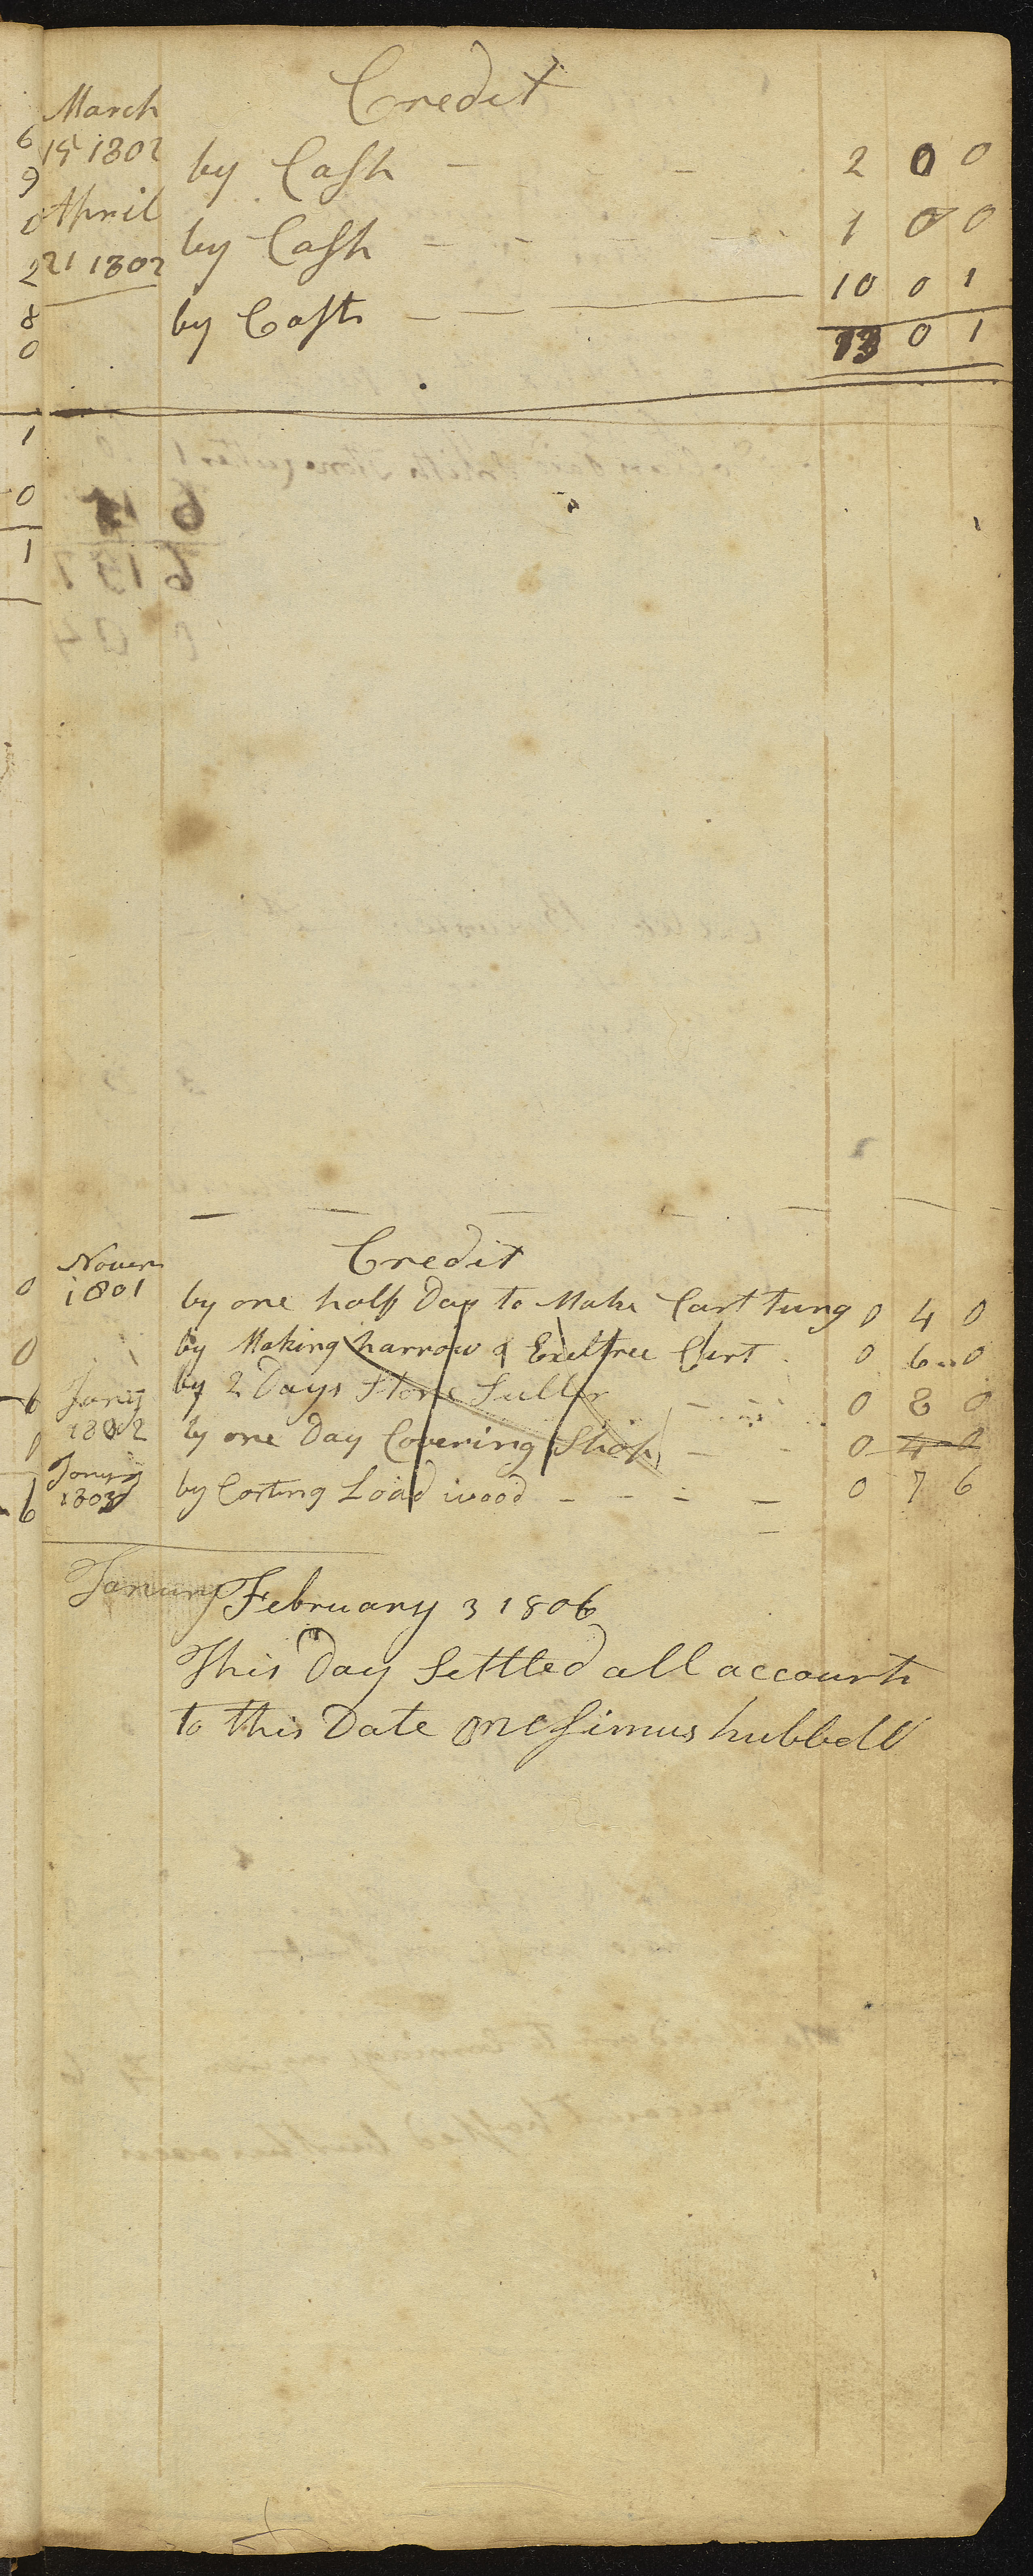 Credit
March
15 1802 by Cash 2 0 0
April
21 1802 by Cash 1 0 0
by Cash 10 0 1
13 0 1
Credit
Novem
1801 by one half Day to Make Cart tung 0 4 0
by Making harrow & Exeltree Cart 0 6 0
Janry
1802 by 2 Days Stone Fuller 0 8 0
by one Day Covering Shop 0 4 0
Janury
1803 by Carting Load wood 0 7 6
Janury February 3 1806
This Day Settled all accounts
to this Date Onesimus hubbell